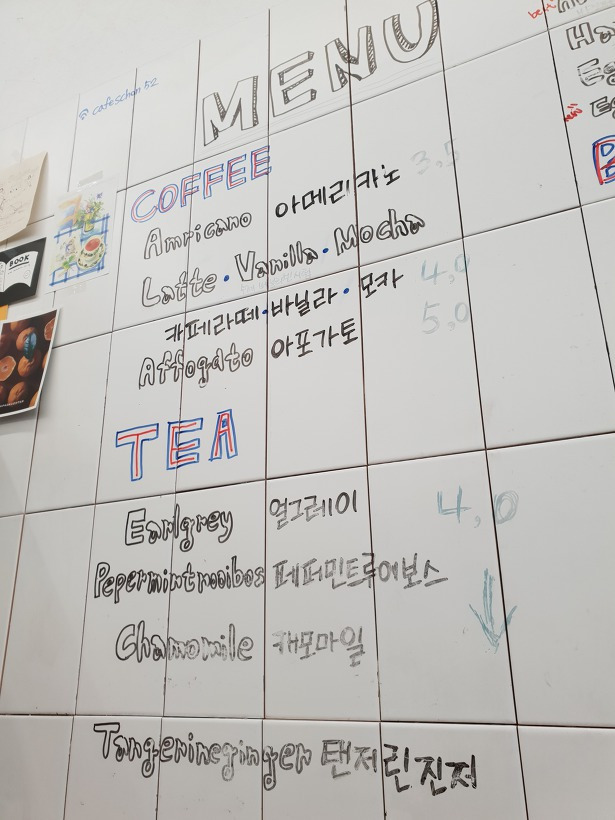 cafeschon 52
MENU
COFFEE
Amricano 아메리카노 3,5
Latte · Vanilla · Mocha
카페라떼 · 바닐라 · 모카 4,0
Affogato 아포가토 5,0
TEA
Earlgrey 얼그레이 4,0
Pepermintrooibos 페퍼민트루이보스
Chamomile 캐모마일
Tangerineginger 탠저린진저
BOOK